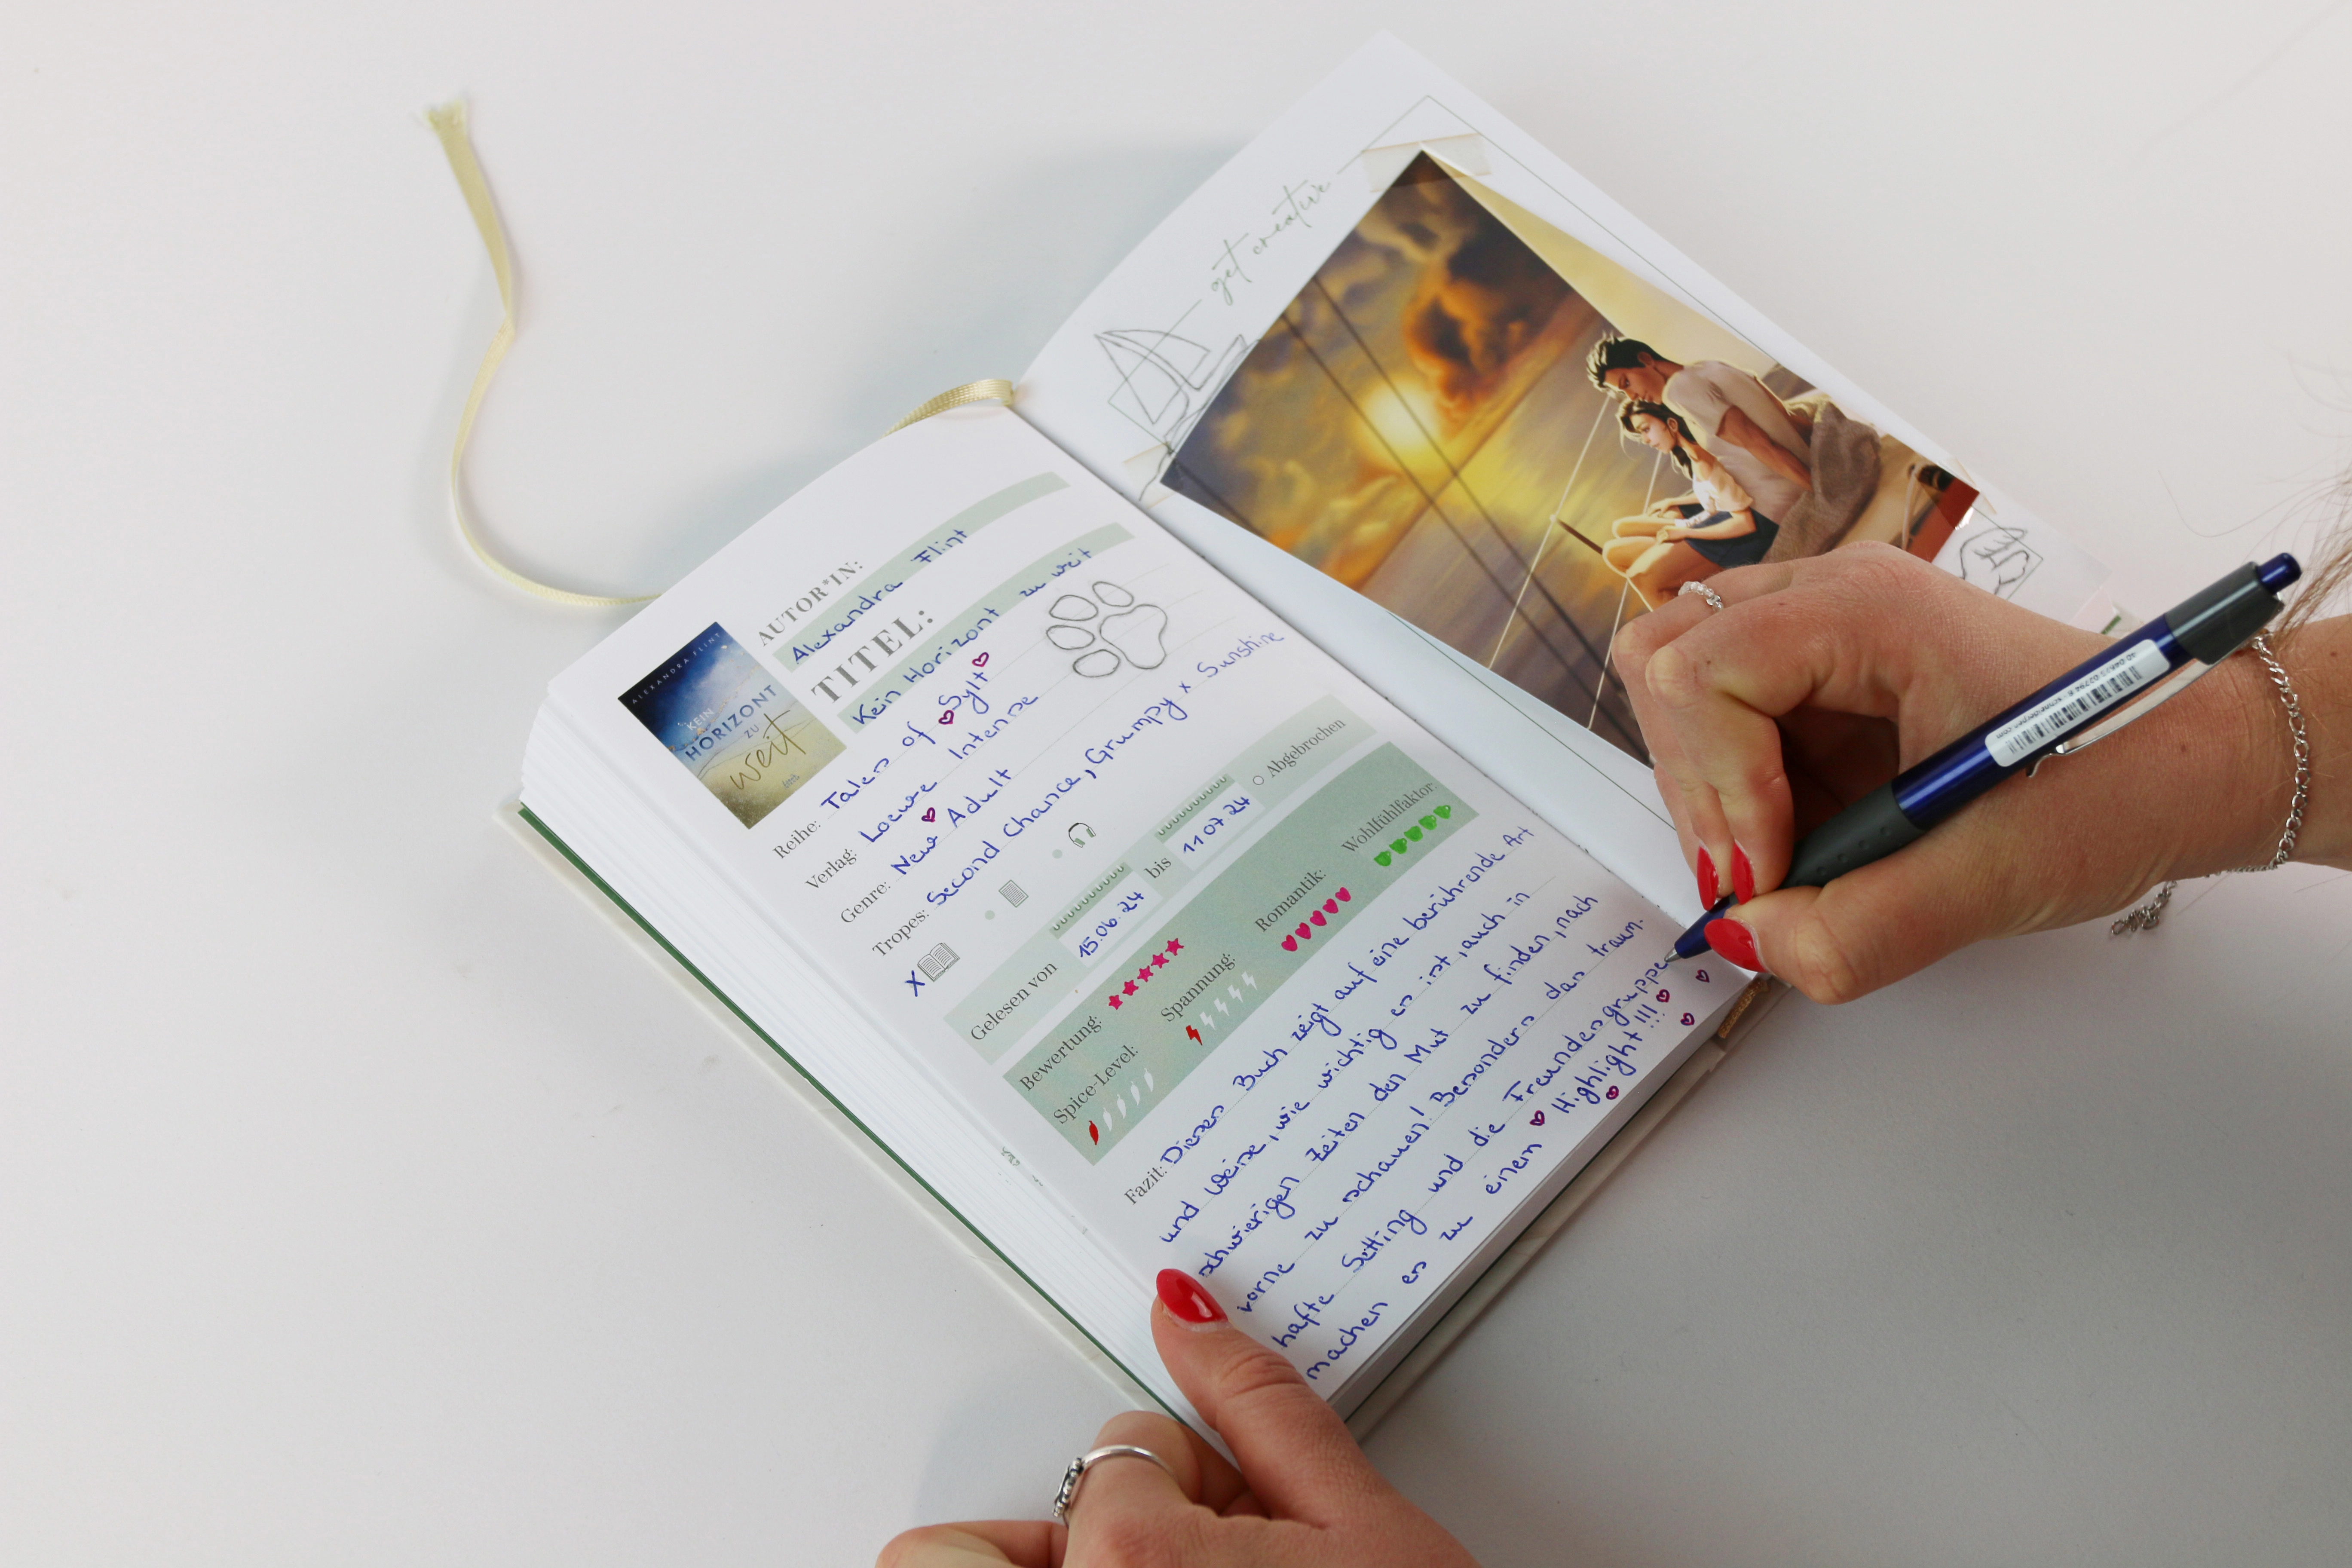 get creative
ALEXANDRA FLINT
KEIN
HORIZONT
ZU
weit
AUTOR*IN:
Alexandra Flint
TITEL:
Kein Horizont zu weit
Reihe: Tales of Sylt
Verlag: Loewe Intense
Genre: New Adult
Tropes: Second Chance, Grumpy x Sunshine
X
Gelesen von 15.06.24 bis 11.07.24 Abgebrochen
Bewertung: Romantik: Wohlfühlfaktor:
Spice-Level: Spannung:
Fazit: Dieses Buch zeigt auf eine berührende Art
und Weise, wie wichtig es ist, auch in
schwierigen Zeiten den Mut zu finden, nach
vorne zu schauen! Besonders das traum-
hafte Setting und die Freundesgruppe
machen es zu einem Highlight!!!